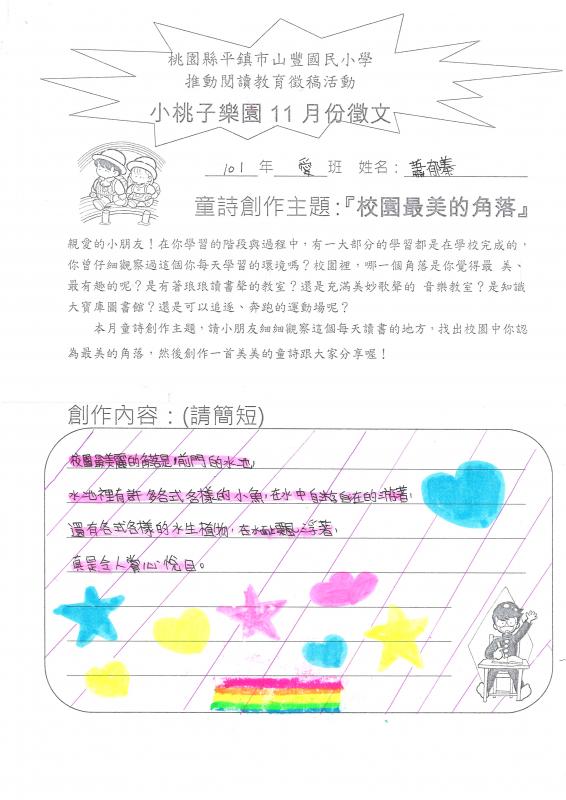 桃園縣平鎮市山豐國民小學
推動閱讀教育徵稿活動
小桃子樂園 11 月份徵文
101 年 愛 班 姓名:蕭郁蓁
童詩創作主題:『校園最美的角落』
親愛的小朋友!在你學習的階段與過程中,有一大部分的學習都是在學校完成的,
你曾仔細觀察過這個你每天學習的環境嗎?校園裡,哪一個角落是你覺得最 美、
最有趣的呢?是有著琅琅讀書聲的教室?還是充滿美妙歌聲的 音樂教室?是知識
大寶庫圖書館?還是可以追逐、奔跑的運動場呢?
本月童詩創作主題,請小朋友細細觀察這個每天讀書的地方,找出校園中你認
為最美的角落,然後創作一首美美的童詩跟大家分享喔!
創作內容:(請簡短)
校園最美麗的角落是,前門的水池,
水池裡有許多各式各樣的小魚,在水中自由自在的游著,
還有各式各樣的水生植物,在水面飄浮著,
真是令人賞心悅目。